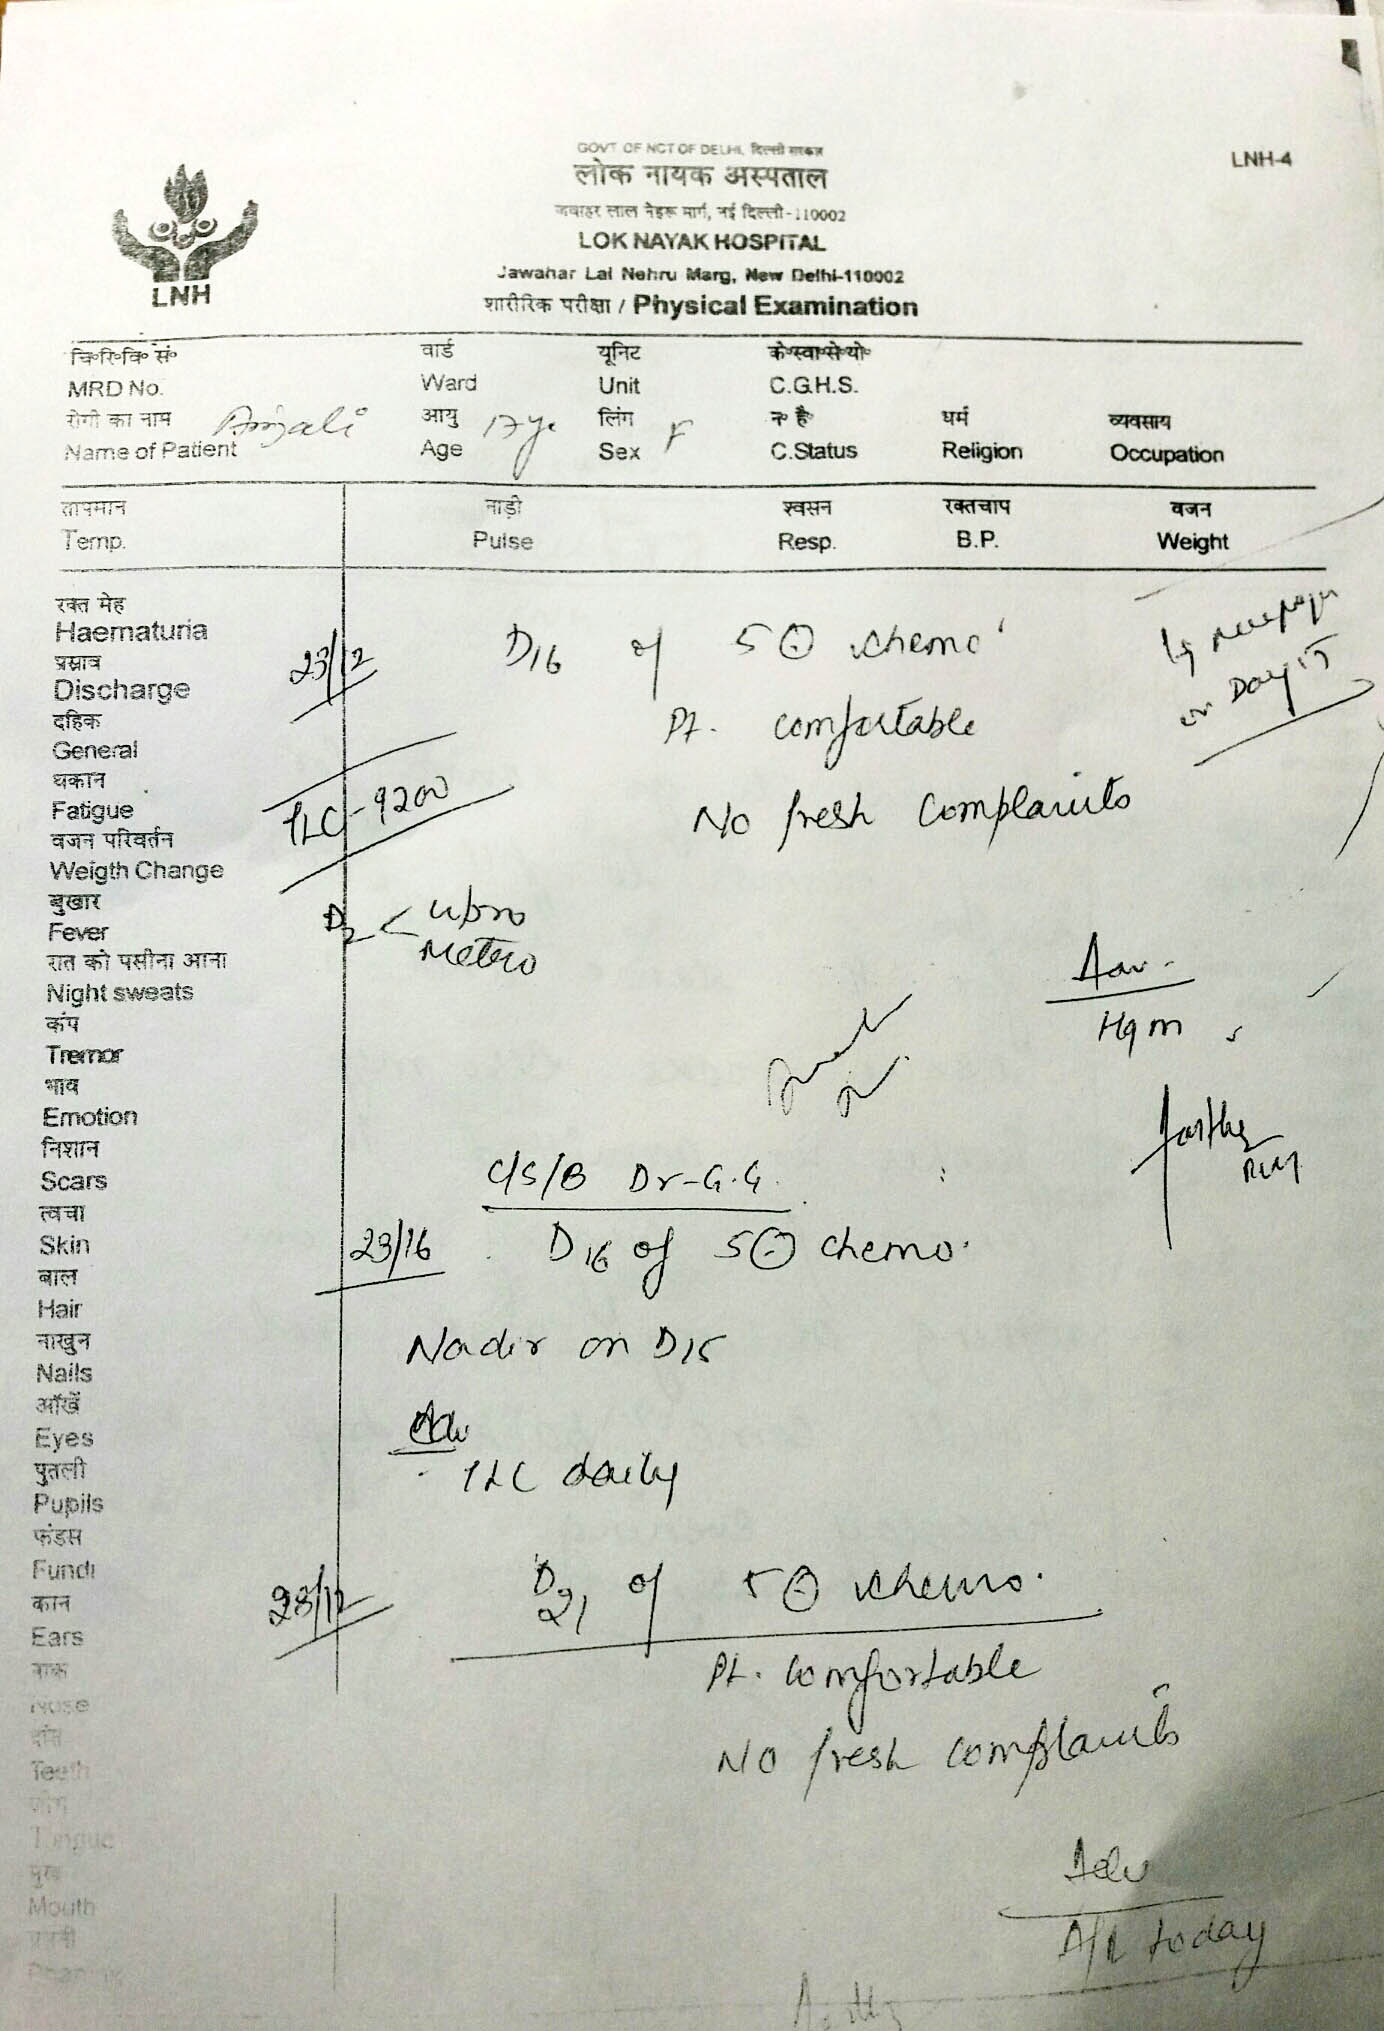 GOVT OF NCT OF DELHI, दिल्ली सरकार
LNH-4
लोक नायक अस्पताल
जवाहर लाल नेहरू मार्ग, नई दिल्ली-110002
LOK NAYAK HOSPITAL
Jawahar Lal Nehru Marg, New Delhi-110002
LNH
शारीरिक परीक्षा / Physical Examination
चि०रि०वि० सं० वार्ड यूनिट के०स्वा०से०यो०
MRD No. Ward Unit C.G.H.S.
रोगी का नाम Anjali आयु 17 लिंग F न० है० धर्म व्यवसाय
Name of Patient Age Sex C.Status Religion Occupation
तापमान नाड़ी श्वसन रक्तचाप वजन
Temp. Pulse Resp. B.P. Weight
रक्त मेह
Haematuria
प्रस्राव
Discharge
दहिक
General
थकान
Fatigue
वजन परिवर्तन
Weigth Change
बुखार
Fever
रात को पसीना आना
Night sweats
कंप
Tremor
भाव
Emotion
निशान
Scars
त्वचा
Skin
बाल
Hair
नाखुन
Nails
आँखें
Eyes
पुतली
Pupils
फंडस
Fundi
कान
Ears
नाक
Nose
दांत
Teeth
Tongue
मुख
Mouth
23/12 D16 of 5 chemo
on Day 15
Pt. comfortable
TLC-9200
No fresh complaints
D2 <
Metro
Adv.
Hgm
C/S/B Dr-G.G.
23/16 D16 of 5 chemo.
Nadir on D15
Adv
TLC daily
28/12 D21 of 5 chemo.
Pt. comfortable
No fresh complaints
Adv
today